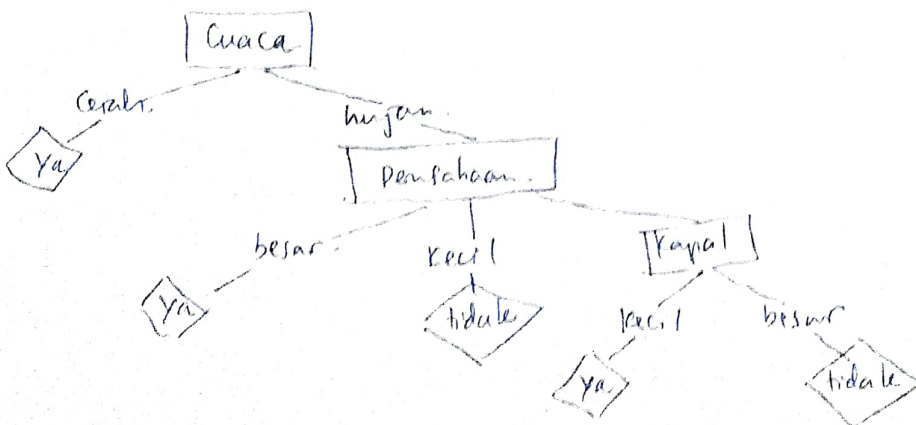 Cuaca
Cerah.
hujan.
Ya
Perusahaan.
besar.
kecil
Kapal
Ya
tidak
kecil
besar
ya
tidak